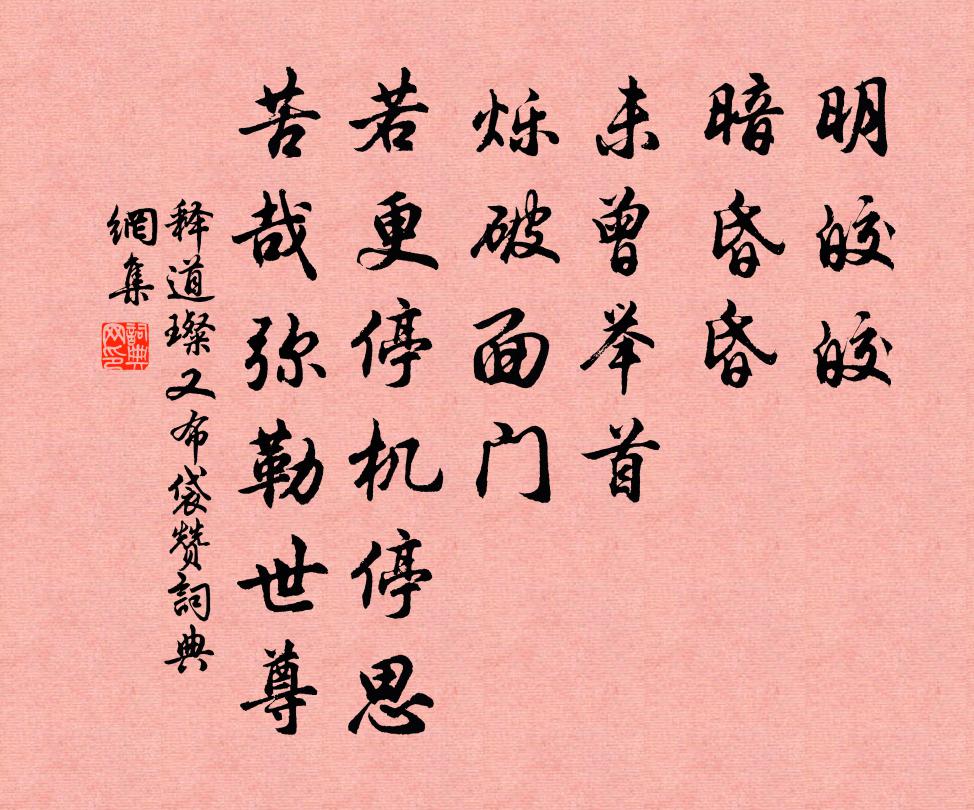 明皎皎
暗昏昏
未曾举首
烁破面门
若更停机停思
苦哉弥勒世尊
释道璨又布袋赞詞典
網集
詞典
网印